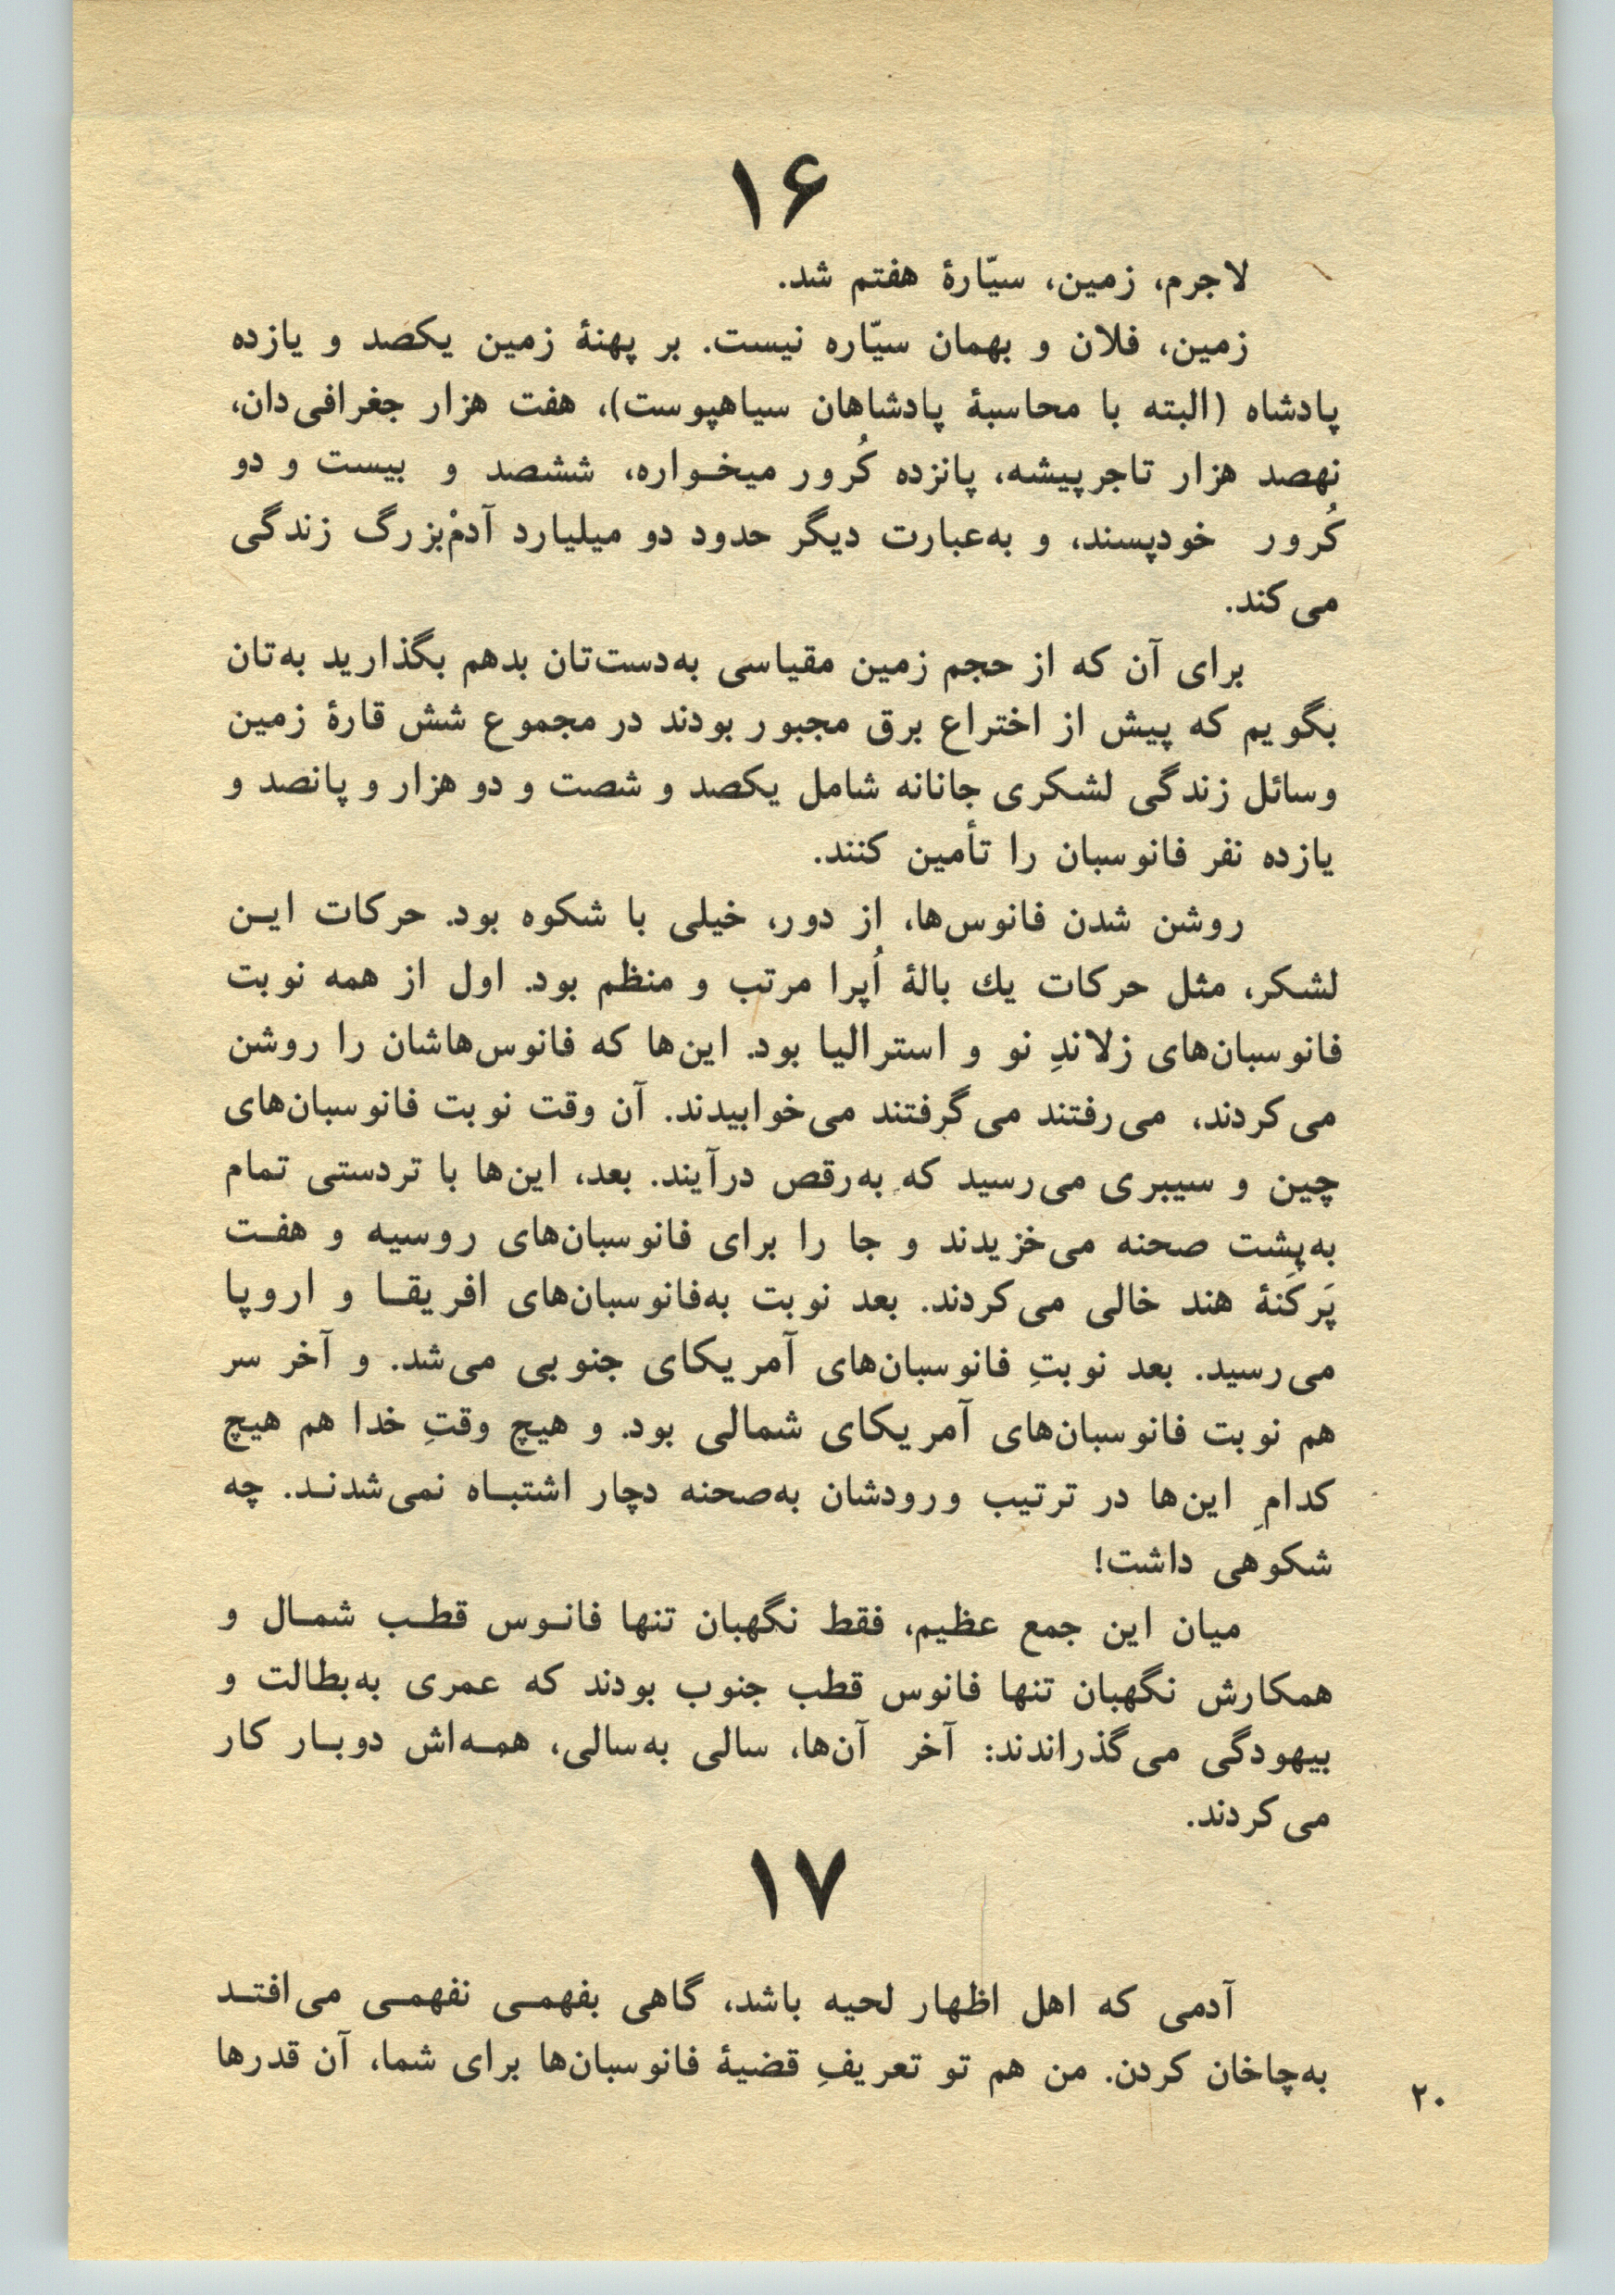 ۱۶
لاجرم، زمین، سیّارهٔ هفتم شد.
زمین، فلان و بهمان سیّاره نیست. بر پهنهٔ زمین یکصد و یازده
پادشاه (البته با محاسبهٔ پادشاهان سیاهپوست)، هفت هزار جغرافی‌دان،
نهصد هزار تاجرپیشه، پانزده کُرور میخـواره، ششصد و بیست و دو
کُرور خودپسند، و به‌عبارت دیگر حدود دو میلیارد آدمْ‌بزرگ زندگی
می‌کند.
برای آن که از حجم زمین مقیاسی به‌دست‌تان بدهم بگذارید به‌تان
بگویم که پیش از اختراع برق مجبور بودند در مجموع شش قارهٔ زمین
وسائل زندگی لشکری جانانه شامل یکصد و شصت و دو هزار و پانصد و
یازده نفر فانوسبان را تأمین کنند.
روشن شدن فانوس‌ها، از دور، خیلی با شکوه بود. حرکات ایـن
لشکر، مثل حرکات یك بالهٔ اُپرا مرتب و منظم بود. اول از همه نوبت
فانوسبان‌های زلاندِ نو و استرالیا بود. این‌ها که فانوس‌هاشان را روشن
می‌کردند، می‌رفتند می‌گرفتند می‌خوابیدند. آن وقت نوبت فانوسبان‌های
چین و سیبری می‌رسید که به‌رقص درآیند. بعد، این‌ها با تردستی تمام
به‌پشت صحنه می‌خزیدند و جا را برای فانوسبان‌های روسیه و هفـت
پَرکَنهٔ هند خالی می‌کردند. بعد نوبت به‌فانوسبان‌های افریقـا و اروپا
می‌رسید. بعد نوبتِ فانوسبان‌های آمریکای جنوبی می‌شد. و آخر سر
هم نوبت فانوسبان‌های آمریکای شمالی بود. و هیچ وقتِ خدا هم هیچ
کدامِ این‌ها در ترتیب ورودشان به‌صحنه دچار اشتبـاه نمی‌شدنـد. چه
شکوهی داشت!
میان این جمع عظیم، فقط نگهبان تنها فانـوس قطـب شمـال و
همکارش نگهبان تنها فانوس قطب جنوب بودند که عمری به‌بطالت و
بیهودگی می‌گذراندند: آخر آن‌ها، سالی به‌سالی، همـه‌اش دوبـار کار
می‌کردند.
۱۷
آدمی که اهل اظهار لحیه باشد، گاهی بفهمـی نفهمـی می‌افتـد
به‌چاخان کردن. من هم تو تعریفِ قضیهٔ فانوسبان‌ها برای شما، آن قدرها
۲۰